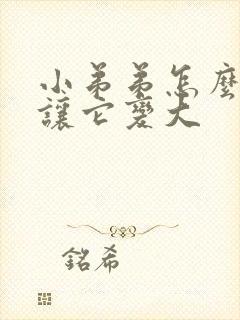 小弟弟怎麼
讓它變大
銘希